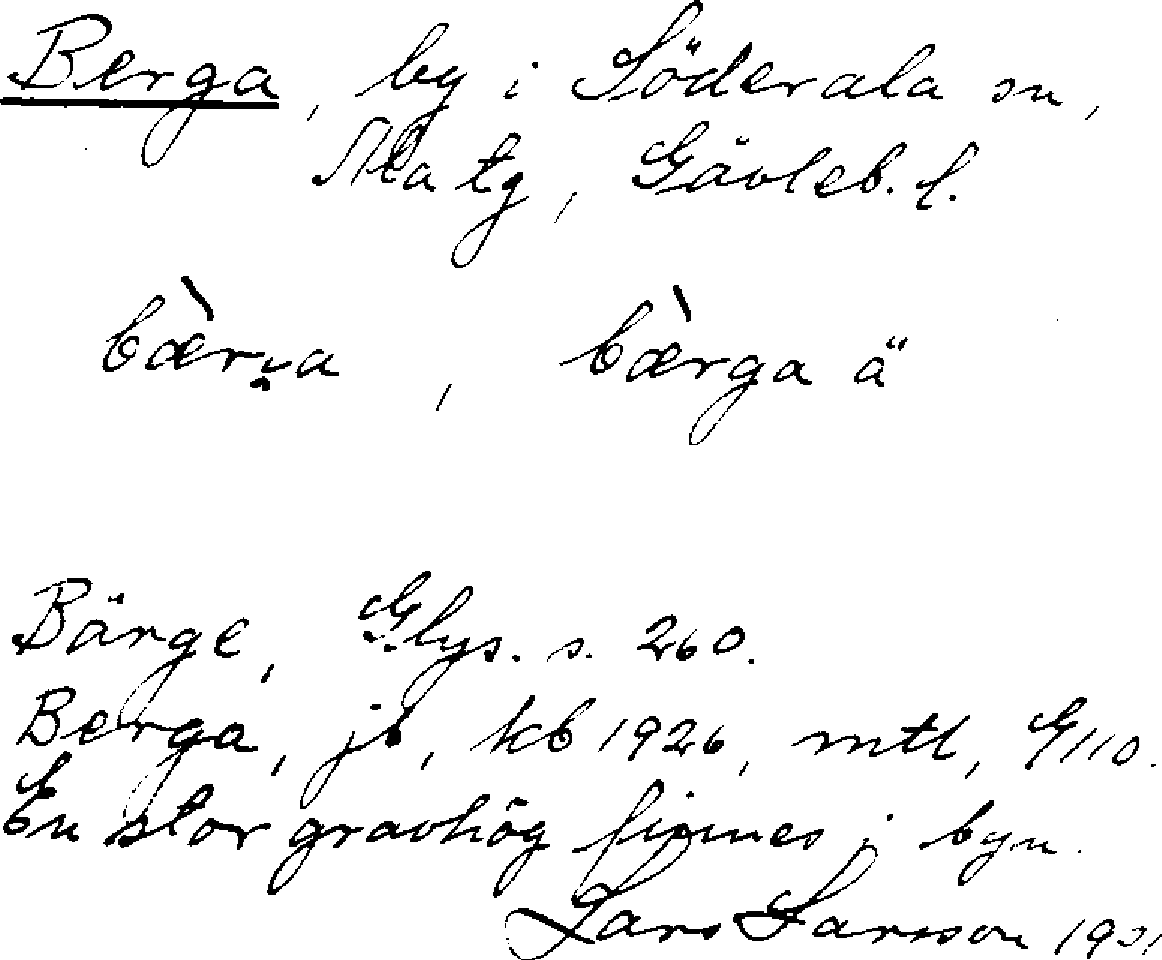 Berga, by i Söderala sn,
Ala tg, Gävleb. l.
bær̀va, bær̀ga ä
Bärge, Glys. s. 260.
Berga, jb, kb 1926, mtl, G110.
En stor gravhög finnes i byn.
Lars Larsson 1931